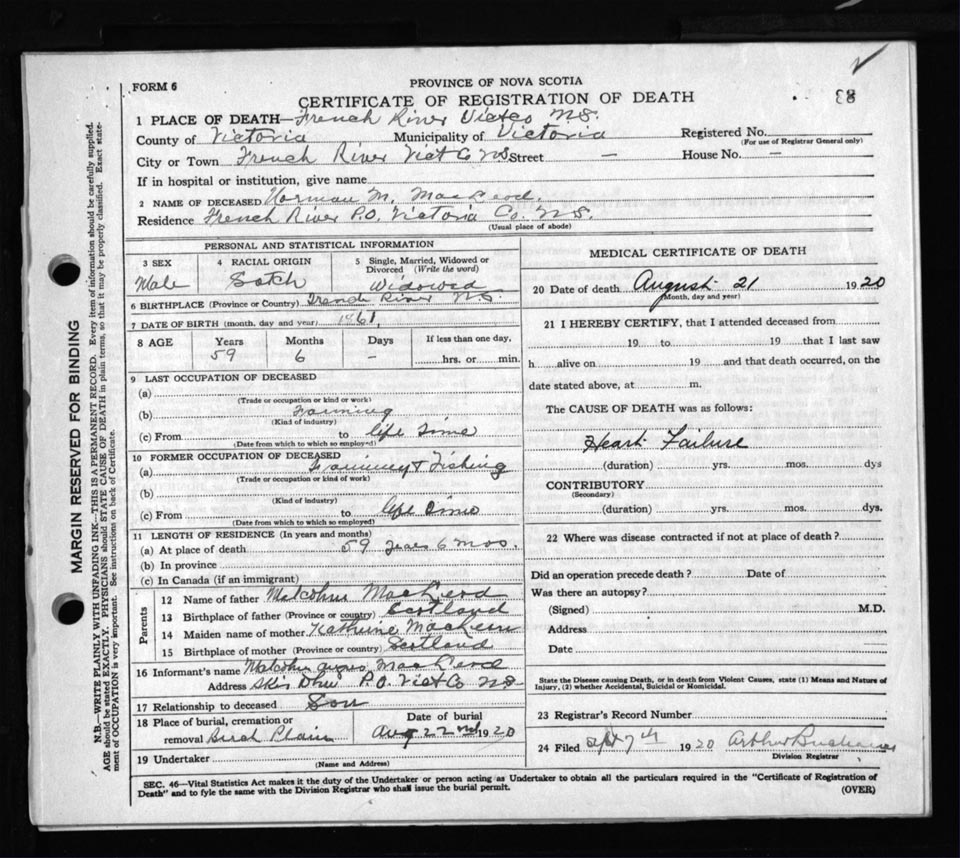 FORM 6
PROVINCE OF NOVA SCOTIA
CERTIFICATE OF REGISTRATION OF DEATH
83
1 PLACE OF DEATH—French River Vict Co N.S.
County of Victoria Municipality of Victoria Registered No.
(For use of Registrar General only)
City or Town French River Vict Co N.S. Street — House No. —
If in hospital or institution, give name
2 NAME OF DECEASED Norman M. MacLeod.
Residence French River P.O. Victoria Co. N.S.
(Usual place of abode)
PERSONAL AND STATISTICAL INFORMATION
3 SEX
Male
4 RACIAL ORIGIN
Sotch
5 Single, Married, Widowed or Divorced (Write the word)
Widowed
6 BIRTHPLACE (Province or Country) French River N.S.
7 DATE OF BIRTH (month, day and year) 1861,
8 AGE Years Months Days If less than one day,
59 6 – hrs. or min.
9 LAST OCCUPATION OF DECEASED
(a)
(Trade or occupation or kind or work)
(b) Farming
(Kind of industry)
(c) From to life time
(Date from which to which so employed)
10 FORMER OCCUPATION OF DECEASED
(a) Farming & Fishing
(Trade or occupation or kind of work)
(b)
(Kind of industry)
(c) From to life time
(Date from which to which so employed)
11 LENGTH OF RESIDENCE (In years and months)
(a) At place of death 59 years 6 mos.
(b) In province
(c) In Canada (if an immigrant)
Parents
12 Name of father MacLeod
13 Birthplace of father (Province or country) Scotland
14 Maiden name of mother Katherine
15 Birthplace of mother (Province or country) Scotland
16 Informant's name Angus MacLeod
Address Skir Dhu P.O. Vict Co N.S.
17 Relationship to deceased Son
18 Place of burial, cremation or removal Birch Plain
Date of burial
Aug 22nd 1920
19 Undertaker
(Name and Address)
MEDICAL CERTIFICATE OF DEATH
20 Date of death August 21 1920
(Month, day and year)
21 I HEREBY CERTIFY, that I attended deceased from
19 to 19 that I last saw
h alive on 19 and that death occurred, on the
date stated above, at m.
The CAUSE OF DEATH was as follows:
Heart Failure
(duration) yrs. mos. dys
CONTRIBUTORY
(Secondary)
(duration) yrs. mos. dys.
22 Where was disease contracted if not at place of death?
Did an operation precede death? Date of
Was there an autopsy?
(Signed) M.D.
Address
Date
State the Disease causing Death, or in death from Violent Causes, state (1) Means and Nature of
Injury, (2) whether Accidental, Suicidal or Homicidal.
23 Registrar's Record Number
24 Filed Sept 7th 1920 Arthur Buchanan
Division Registrar
SEC. 46—Vital Statistics Act makes it the duty of the Undertaker or person acting as Undertaker to obtain all the particulars required in the "Certificate of Registration of
Death" and to fyle the same with the Division Registrar who shall issue the burial permit. (OVER)
MARGIN RESERVED FOR BINDING
N.B.—WRITE PLAINLY WITH UNFADING INK—THIS IS A PERMANENT RECORD. Every item of information should be carefully supplied.
AGE should be stated EXACTLY. PHYSICIANS should STATE CAUSE OF DEATH in plain terms, so that it may be properly classified. Exact state-
ment of OCCUPATION is very important. See instructions on back of Certificate.